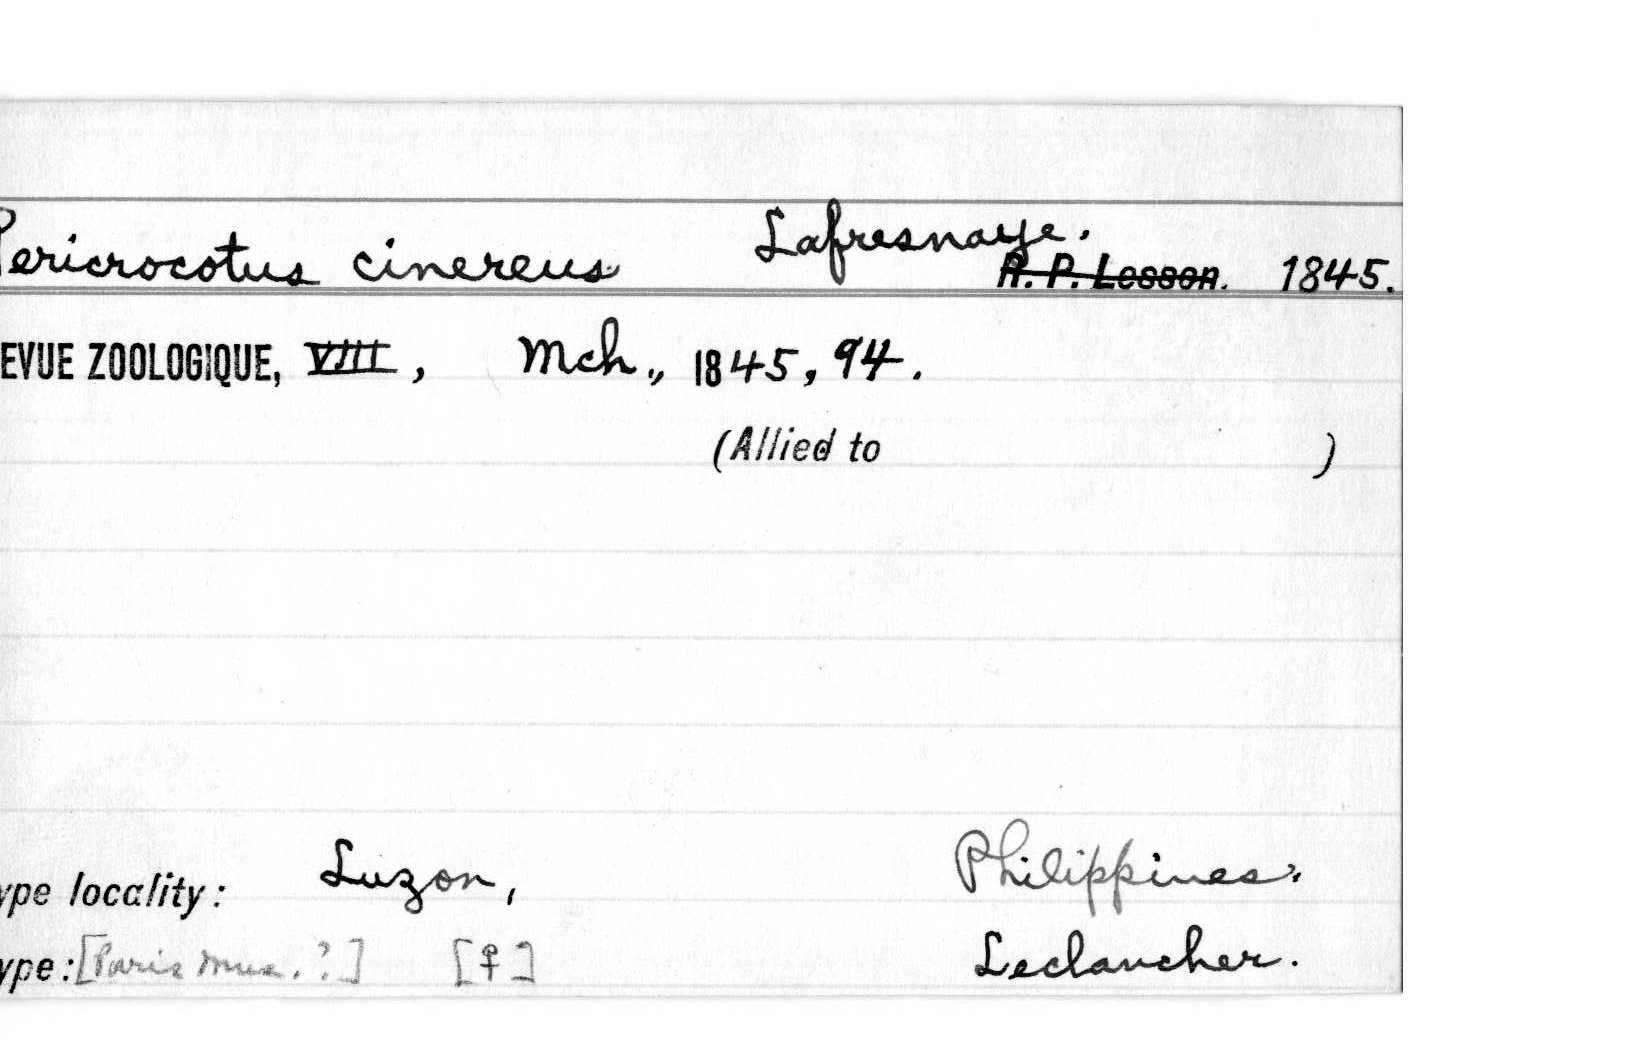 Pericrocotus cinereus Lafresnaye.
R. P. Lesson. 1845.
EVUE ZOOLOGIQUE, VIII, Mch., 1845, 94.
(Allied to )
ype locality: Luzon, Philippines.
ype: [Paris Mus. ?] [♀] Leclancher.